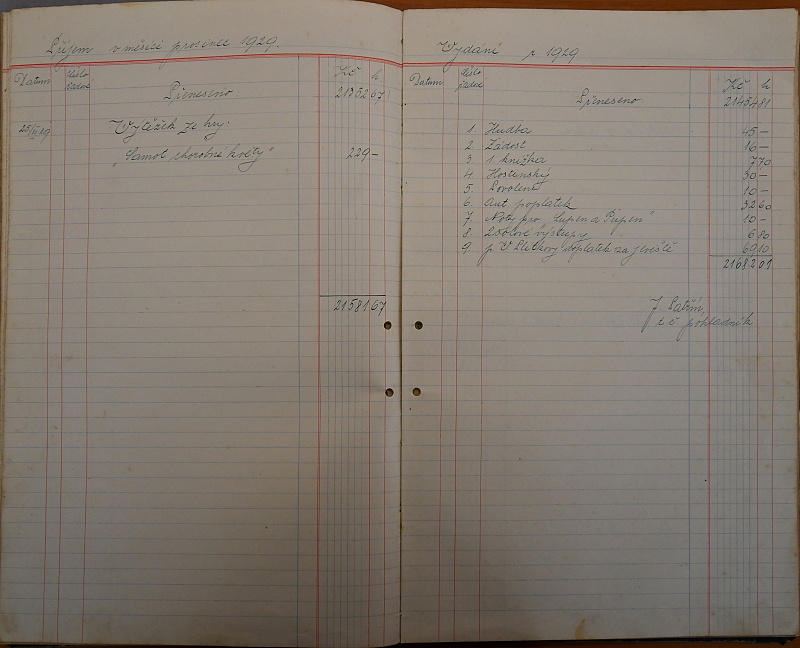 Příjem v měsíci prosinec 1929.
Datum Číslo řadové Kč h
Přeneseno: 21352 67
25/XII 29 Výtěžek ze hry:
„Samot chorobné květy" 229 –
21581 67
Vydání r 1929
Datum Číslo řadové Kč h
Přeneseno 21454 81
1. Hudba 45 –
2. Žádost 16 –
3. 1 knížka 7 70
4. Hostenský 30 –
5. Povolení 10 –
6. Aut. poplatek 32 60
7. Noty pro „Lupen a Pupen" 10 –
8. 2 sólové výstupy 6 80
9. p. V. doplatek za jeviště 69 10
21682 01
J.
t. č. pokladník